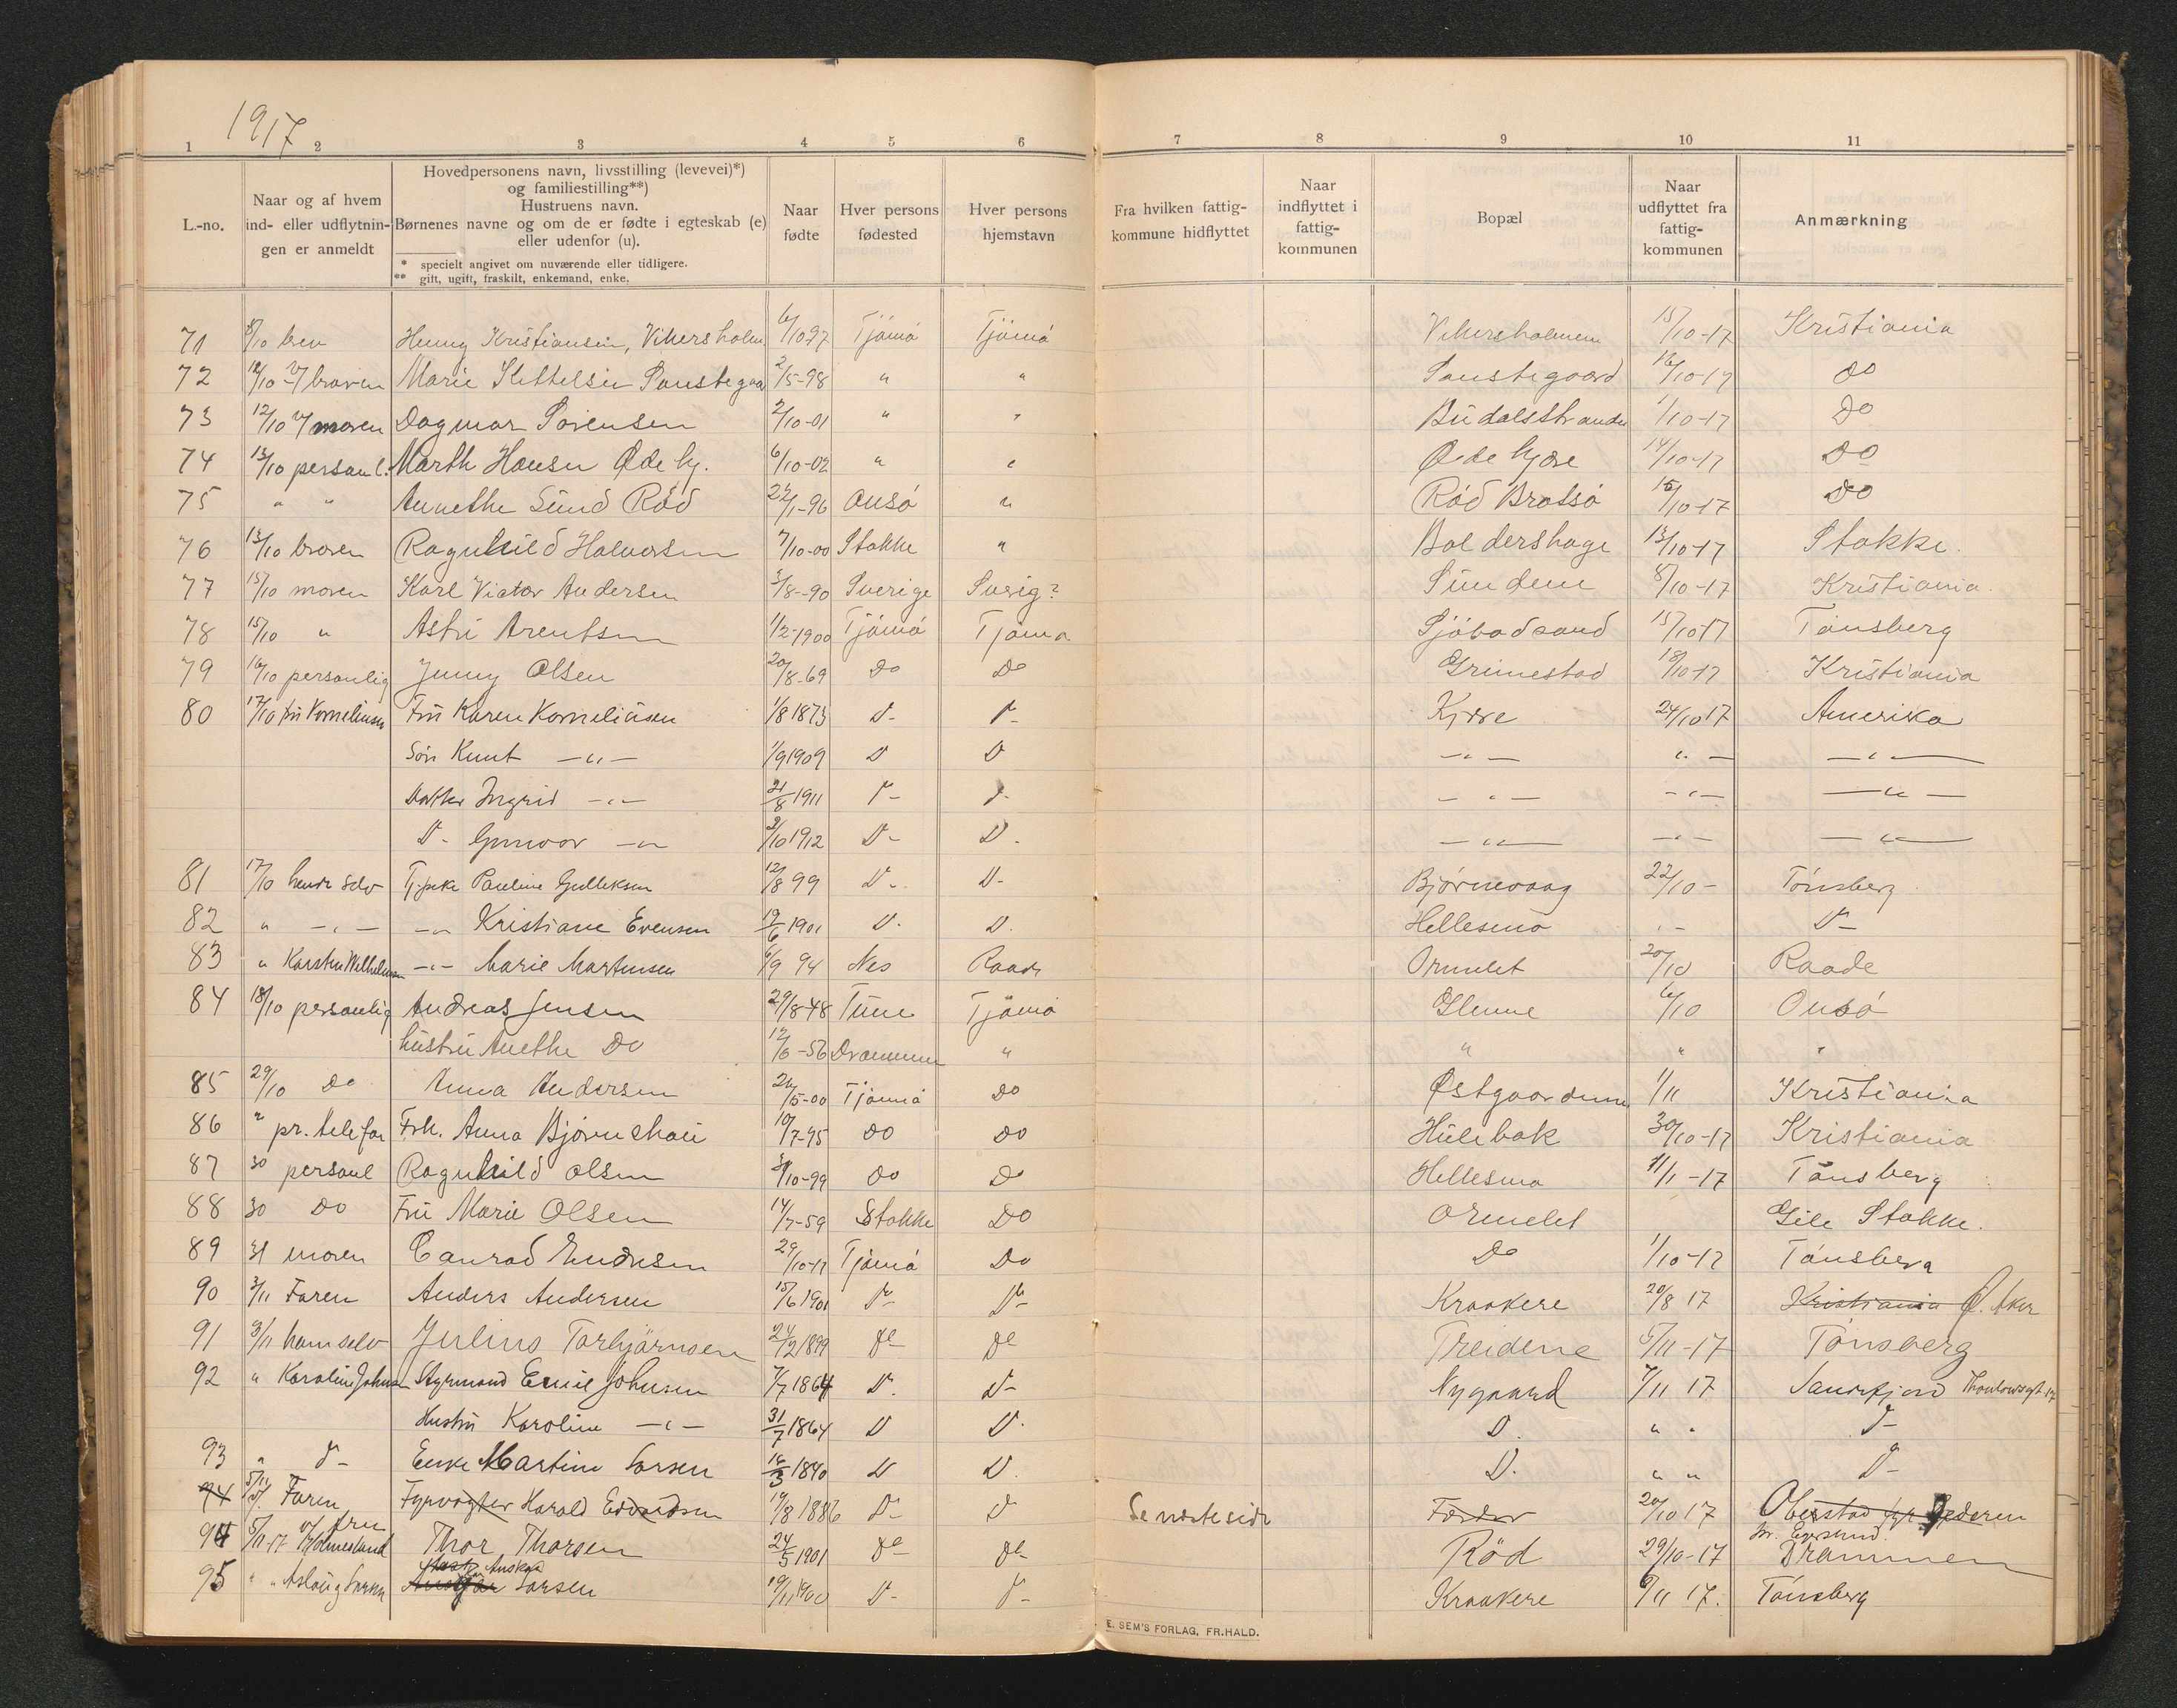 1917
1 2 3 4 5 6 7 8 9 10 11
L.-no.
Naar og af hvem ind- eller udflytnin-gen er anmeldt
Hovedpersonens navn, livsstilling (levevei)*) og familiestilling**) Hustruens navn. Børnenes navne og om de er fødte i egteskab (e) eller udenfor (u).
* specielt angivet om nuværende eller tidligere.
** gift, ugift, fraskilt, enkemand, enke.
Naar fødte
Hver persons fødested
Hver persons hjemstavn
Fra hvilken fattig-kommune hidflyttet
Naar indflyttet i fattig-kommunen
Bopæl
Naar udflyttet fra fattig-kommunen
Anmærkning
71 8/10 brev Henny Kristiansen, Vikersholm 6/10 97 Tjömö Tjömö Vikersholmen 15/10-17 Kristiania
72 12/10 v/ broren Marie Kittelsen Sonstegaar 2/5-98 " " Sonstegaard 16/10-17 do
73 12/10 v/ moren Dagmar Sörensen 2/10-01 " " Budalsstranden 1/10-17 Do
74 13/10 personl. Marth Hansen Ødekj. 6/10-02 " " Ødekjære 14/10-17 Do
75 " " Annethe Lund Röd 22/1-96 Onsö " Röd Brötsö 15/10-17 Do
76 13/10 broren Ragnhild Halvorsen 7/10-00 Stokke " Boldershage 13/10-17 Stokke.
77 15/10 moren Karl Victor Andersen 3/8-90 Sverige Sverig? Sundene 8/10-17 Kristiania.
78 15/10 " Astri Arentsen 1/2-1900 Tjömö Tjömö Sjöbodsand 15/10-17 Tönsberg
79 16/10 personlig Jenny Olsen 20/8-69 Do Do Grimestad 18/10-17 Kristiania
80 17/10 fru Korneliusen Fru Karen Korneliusen 1/8 1873 D- D- Kjære 24/10 17 Amerika
Søn Knut -"- 1/9 1909 D D -"- "- -"-
Datter Ingrid -"- 21/8 1911 D- D- -"- -"- -"-
D- Gunvor -"- 2/10 1912 D- D. -"- -"- -"-
81 17/10 hende selv Tj.pike Pauline Gulliksen 12/8 99 D- D- Bjørnevaag 22/10- Tönsberg
82 " -"- -"- Kristiane Evensen 19/6 1901 D. D. Hellesmo "- D-
83 " Karsten Wilhelmsen -"- Marie Martinsen 6/9 94 Nes Raade Ormelet 20/10 Raade
84 18/10 personlig Andreas Jensen 29/8-48 Tune Tjömö Glenne 6/10 Onsö
hustru Anethe Do 12/6-56 Drammen " " " "
85 29/10 Do Anna Andersen 26/5-00 Tjömö Do Østgaardene 1/11 Kristiania
86 " pr. telefon Frk. Anna Bjørnskau 10/7-95 Do Do Hulebak 30/10-17 Kristiania
87 30 personl Ragnhild Olsen 31/10-99 Do Do Hellesmo 1/11-17 Tönsberg
88 30 Do Fru Marie Olsen 14/7-59 Stokke Do Ormelet Gile Stokke.
89 31 moren Conrad Endresen 29/10-17 Tjömö Do Do 1/10-17 Tönsberg
90 3/11 Faren Anders Andersen 15/6 1901 D- D- Kraakere 20/8 17 Kristiania Ø. Aker
91 3/11 ham selv Julius Torbjörnsen 24/2 1899 Do Do Treidene 5/11-17 Tönsberg
92 " Karoline Johnsen Styrmand Emil Johnsen 7/7 1864 D. D- Nygaard 7/11 17 Sandefjord
Hustru Karoline -"- 31/7 1864 D D. D. " " D-
93 " D- Enke Martine Larsen 16/3 1840 D D. D. " " D-
94 5/11 Faren Fyrvogter Harald Edvardsen 19/8 1886 D- D Se næste side Færder 20/10 17 Oberstad Jæderen
94 5/11-17 v/ fru Holmesland Thor Thorsen 24/5 1901 Do Do Röd 29/10-17 Drammen
95 " " Aslaug Larsen Larsen 19/11 1900 D- D- Kraakere 6/11 17. Tönsberg
E. SEM'S FORLAG, FR.HALD.